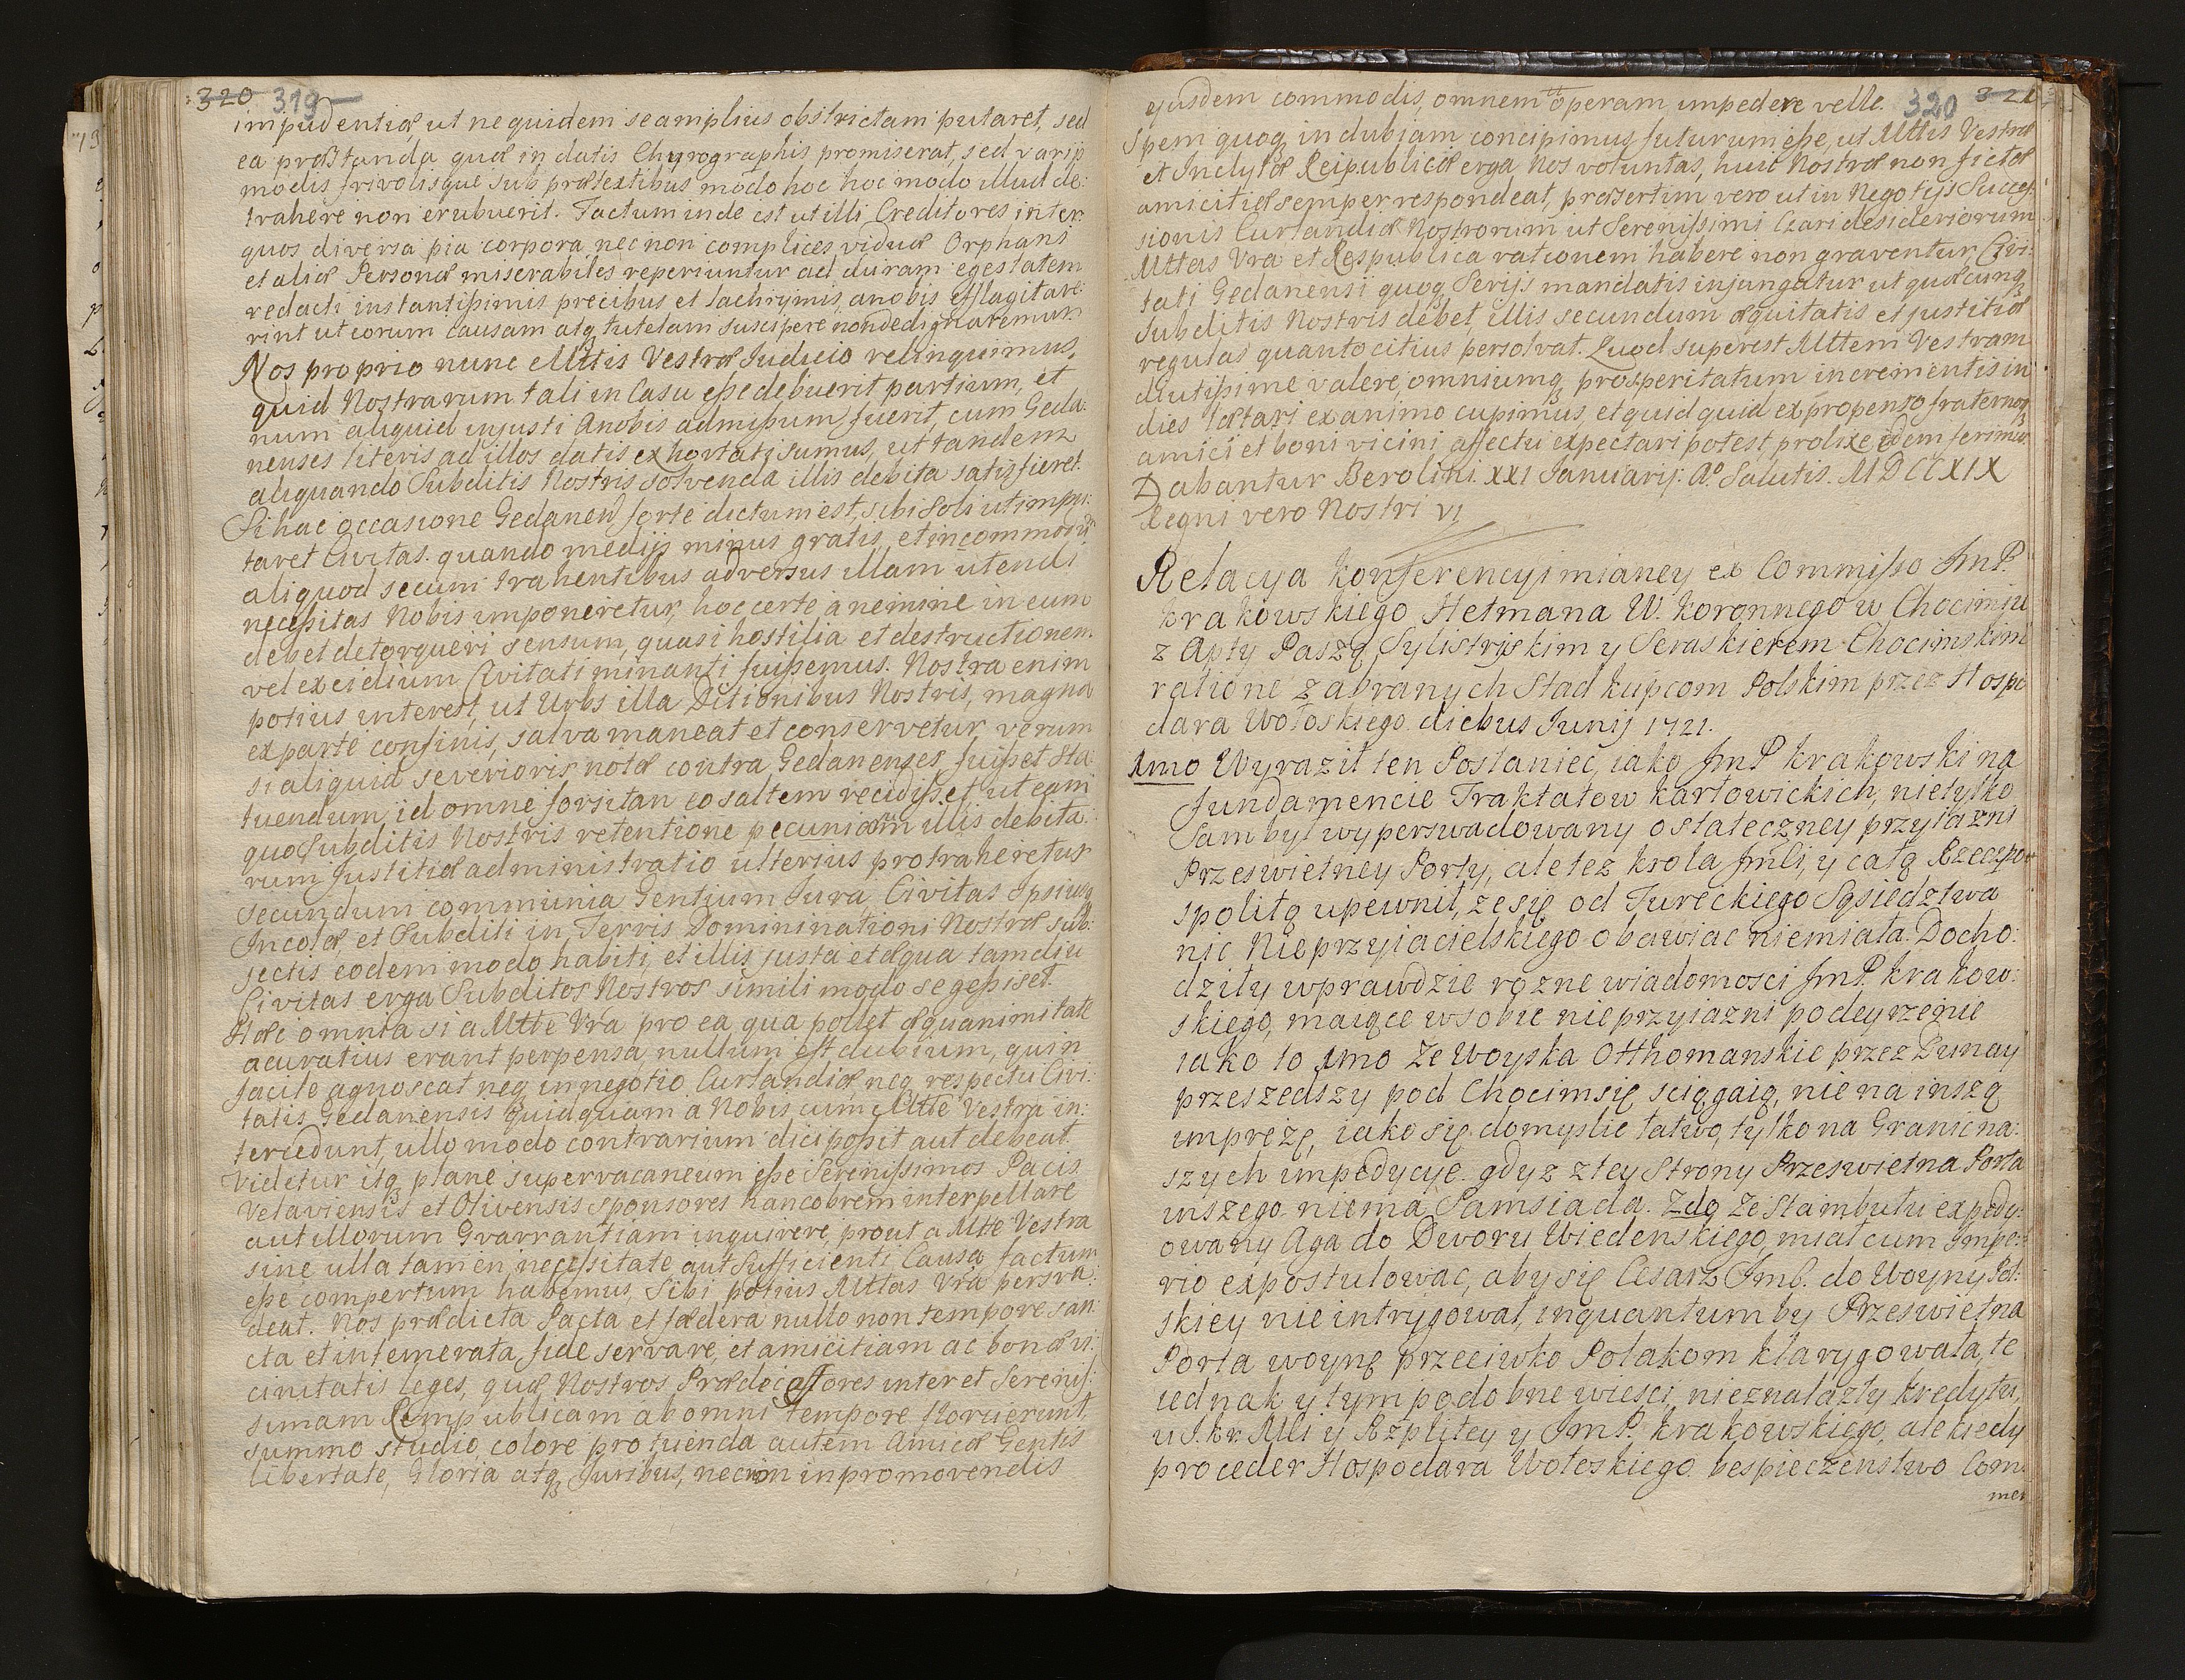 320 319
impudentiæ, ut ne quidem se amplius obstrictam putaret, sed
ea præstanda quæ in datis Chyrographis promiserat, sed varijs
modis frivolisque sub prætextibus modo hoc hoc modo illud de:
trahere non erubuerit. Factum inde est ut illi Creditores inter
quos diversa pia corpora nec non complices viduæ Orphani
et aliæ Personæ miserabiles reperiuntur ad duram egestatem
redacti instantißimis precibus et lachrymis, a nobis efflagitave:
rint ut eorum causam atq tutelam suscipere non dedignaremur.
Nos proprio nunc Mttis Vestræ Judicio relinquimus,
quid Nostrarum tali in Casu eße debuerit partium, et
num aliquid injusti A nobis admißum fuerit, cum Geda:
nenses literis ad illos datis exhortati sumus, ut tandem
aliquando Subditis Nostris solvenda illis debita satisfieret.
Si hac occasione Gedanen forte dictum est, sibi soli ut impu:
taret Civitas. quando medijs minus gratis, et incommodū
aliquod secum trahentibus adversus illam utendi
neceßitas Nobis imponeretur, hoc certe a nemine in eum
debet detorqueri sensum, quasi hostilia et destructionem
vel excidium Civitati minanti fuißemus. Nostra enim
potius interest, ut Urbs illa Ditionibus Nostris, magna
ex parte confinis, salva maneat et conservetur, verum
si aliquid severioris notæ contra Gedanenses fuißet sta:
tuendum, id omne forsitan eo saltem recidißet, ut eam
quo Subditis Nostris retentione pecuniarum illis debita:
rum Justitiæ administratio ulterius protraheretur
secundum communia Gentium Jura Civitas Ipsiusq
Incolæ, et Subditi in Terris Domininationi Nostræ sub:
jectis eodem modo habiti, et illis justa et æqua tamdiu
Civitas erga Subditos Nostros simili modo se geßiset.
Hæc omnia si a Mtte Vra pro ea, qua pollet æquanimitate
acuratius erant perpensa, nullum est dubium, quin
facile agnoscat neq in negotio Curlandiæ, neq respectu Civi:
tatis Gedanensis quidquam a Nobis cum Mtte Vestra in:
tercedunt, ullo modo contrarium dici poßit aut debeat.
Videtur itq plane supervacaneum eße Serenissimos Pacis
Velaviensis et Olivensis sponsores hancobrem interpellare
aut illorum Gvarrantiam inquirere, prout a Mtte Vestra
sine ulla tamen necessitate aut Sufficienti Causa factum
eße compertum habemus, Sibi potius Mttas Vra persva:
deat. Nos prædicta Pacta et fædera nullo non tempore san:
cta et intemerata, fide servare, et amicitiam ac bonæ vi:
cinitatis leges, quæ Nostros Prædecessores inter et Serenis:
simam Rempublicam ab omni tempore floruerunt,
summo studio colore protuenda autem Amicæ Gentis
libertate, Gloria atq Juribus, necnon in promovendis
320 321
ejusdem commodis, omnem operam, impedere velle.
Spem quoq indubiam concipimus, futurum eße, ut Mttis Vestræ
et Inclytæ Reipublicæ erga Nos voluntas, huic Nostræ non fictæ
amicitiæ semper respondeat, præsertim vero ut in Negotijs Succes:
sionis Curlandiæ Nostrorum ut Serenissimi Czari desideriorum
Mttas Vra et Respublica rationem habere non graventur, Civi:
tati Gedanensi quoq Serijs mandatis injungatur ut quæcunq
Subditis Nostris debet, illis secundum æquitatis et justitiæ
regulas quanto citius persolvat. Quod superest Mttem Vestram
diutißime valere, omniumq prosperitatum incrementis in
dies lætari ex animo cupimus, et quidquid ex propenso fraternoq
amici et boni vicini affectu expectari potest, prolixe idem ferimus
Dabantur Berolini XXI Januarij: Ao Salutis. MDCCXIX
Regni vero Nostri VI
Relacya konferencyi mianey ex Commißo JmP.
krakowskiego Hetmana W. koronnego w Chocimiu
z Apty Paszą Sylistryskim y Seraskierem Chocimskim
ratione zabranych Stad kupcom Polskim przez Hospo
dara Wołoskiego diebus Junij 1721.
1mo Wyraził ten Posłaniec, iako JmP krakowski na
fundamencie Traktatow karłowickich, nietylko
Sam był wyperswadowany o stateczney przyiazni
Przeswietney Porty, ale tez krola Jmci, y całą Rzeczpo
spolitą upewnił, ze się od Tureckiego Sąsiedztwa
nic Nieprzyiacielskiego obawiac niemiała. Docho:
dziły wprawdzie rozne wiadomosci JmP. krakow:
skiego, maiące w sobie nieprzyiazni podeyrzenie
iako to 1mo Ze Woyska Otthomanskie przez Dunay
przeszedszy pod Chocim się sciągaią, nie na inszą
imprezę, iako się domyslic łatwo, tylko na Granic na:
szych impedycye. gdyz z tey Strony Przeswietna Porta
inszego niema Samsiada. 2do Ze Stambułu expedy:
owany Aga do Dworu Wiedenskiego, miał cum Impe:
rio expostulowac, aby się Cesarz Jmć. do Woyny Pol:
skiey nie intrygował, inquantum by Przeswietna
Porta woynę przeciwko Polakom klarygowała, te
iednak y tym podobne wiesci, nieznalazły kredytu,
u J. kr. Mci y Rzplitey y JmP. krakowskiego, ale kiedy
proceder Hospodara Wołoskiego bespieczenstwo Com
mer